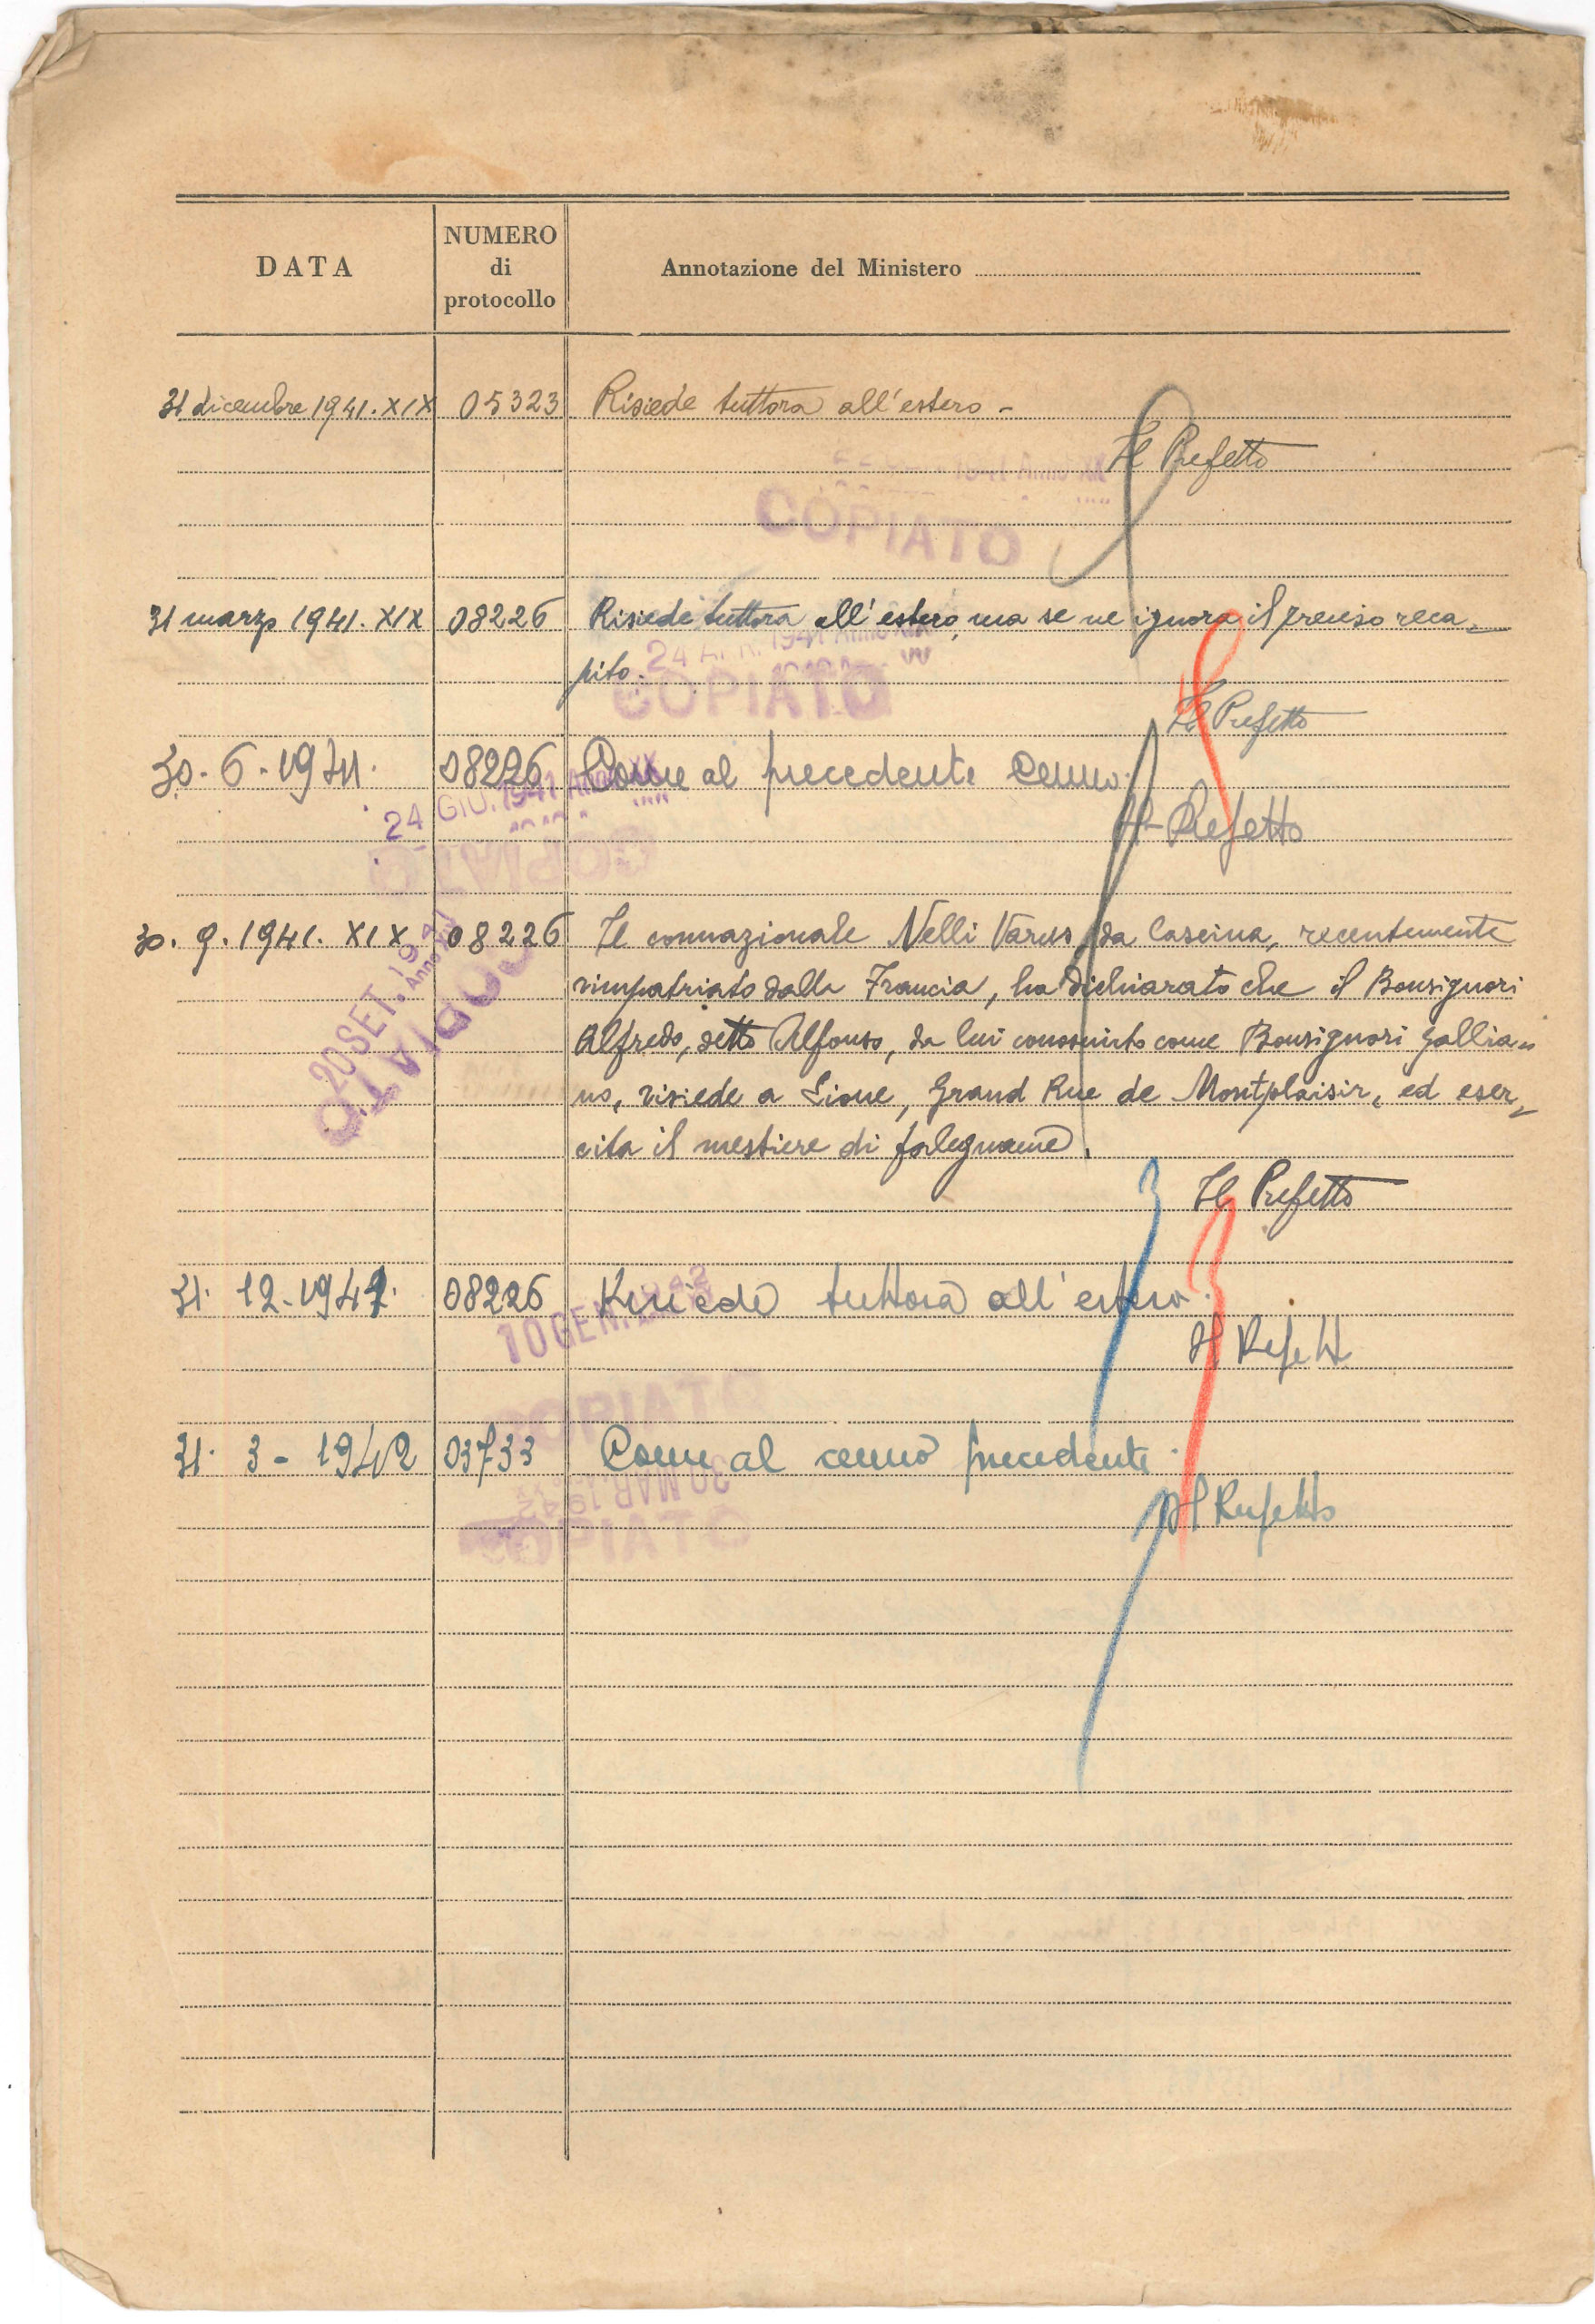 DATA
NUMERO di protocollo
Annotazione del Ministero
31 dicembre 1941. XIX 05323 Risiede tuttora all'estero -
Il Prefetto
1941 Anno XIX
COPIATO
31 marzo 1941. XIX 08226 Risiede tuttora all'estero, ma se ne ignora il preciso reca-
pito.
24 APR. 1941 Anno
COPIATO
Il Prefetto
30. 6. 1941. 08226 Come al precedente cenno.
24 GIU. 1941 Anno XIX
Il Prefetto
COPIATO
30. 9. 1941. XIX 08226 Il connazionale Nelli Varus, da Cascina, recentemente
rimpatriato dalla Francia, ha dichiarato che il Bonsignori
Alfredo, detto Alfonso, da lui conosciuto come Bonsignori Gallia-
no, risiede a Lione, Grand Rue de Montplaisir, ed eser-
cita il mestiere di falegname.
20 SET. 194 Anno
COPIATO
Il Prefetto
31. 12. 1941. 08226 Risiede tuttora all'estero.
10 GEN. 1942
Il Prefetto
COPIATO
31. 3 - 1942 03733 Come al cenno precedente.
30 MAR. 1942
Il Prefetto
COPIATO